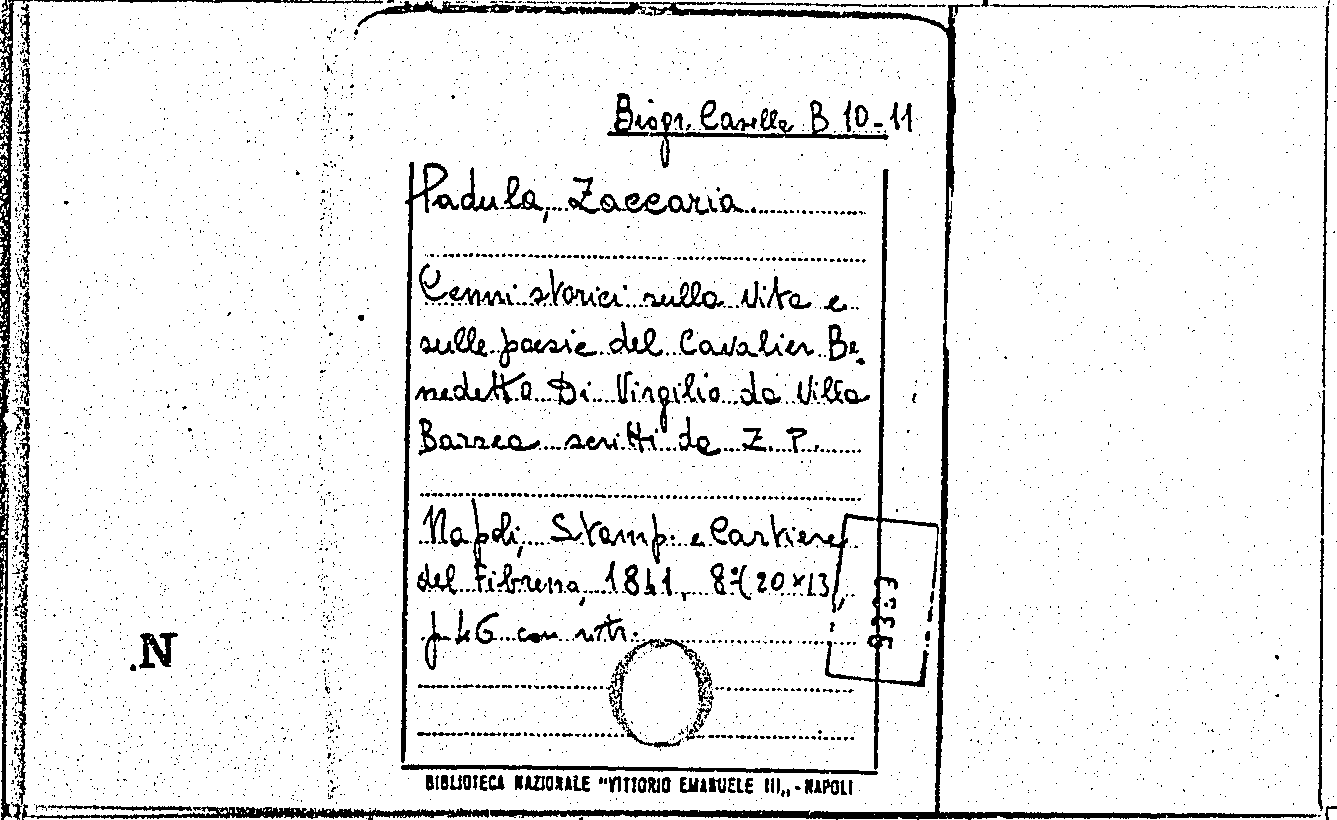 Biogr. Casella B 10-11
Padula, Zaccaria.
Cenni storici sulla vita e
sulle poesie del Cavalier Be-
nedetto Di Virgilio da Villa
Barrea scritti da Z. P.
Napoli, Stamp. e Cartiere
del Fibreno, 1841, 8º (20x13),
p. 46 con ritr.
BIBLIOTECA NAZIONALE "VITTORIO EMANUELE III„ - NAPOLI
N